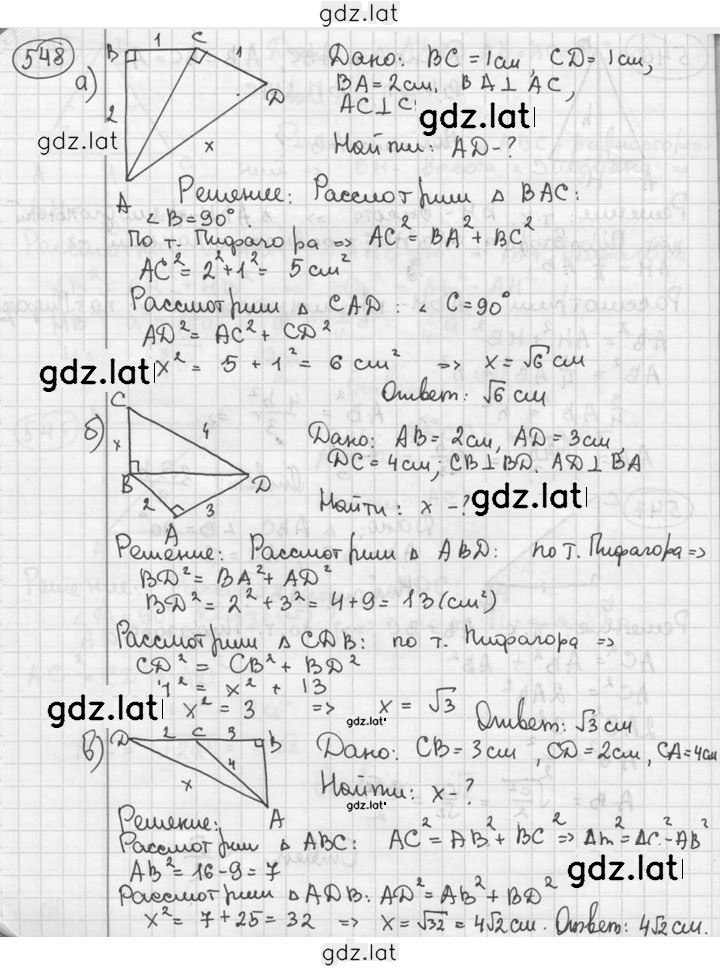 gdz.latі
548
а)
B 1 C 1 D 2 x A
Дано: BC = 1см, CD = 1см,
BA = 2см, BA ⊥ AC,
AC ⊥ C
gdz.latі
Найти: AD - ?
Решение: Рассмотрим △ BAC:
∠B = 90°.
По т. Пифагора => AC² = BA² + BC²
AC² = 2² + 1² = 5 см²
Рассмотрим △ CAD: ∠ C = 90°
AD² = AC² + CD²
x² = 5 + 1² = 6 см² => x = √6 см
gdz.latі
Ответ: √6 см
б)
C x 4 B D 2 3 A
Дано: AB = 2см, AD = 3см,
DC = 4см, CB ⊥ BD. AD ⊥ BA
Найти: x - ?
gdz.latі
Решение: Рассмотрим △ ABD: по т. Пифагора =>
BD² = BA² + AD²
BD² = 2² + 3² = 4 + 9 = 13 (см²)
Рассмотрим △ CDB: по т. Пифагора =>
CD² = CB² + BD²
4² = x² + 13
x² = 3 => x = √3
gdz.latі
Ответ: √3 см
в)
D 2 C 3 B 4 x A
Дано: CB = 3см, CD = 2см, CA = 4см
Найти: x - ?
Решение:
Рассмотрим △ ABC: AC² = AB² + BC² => AB² = AC² - AB²
AB² = 16 - 9 = 7
gdz.latі
Рассмотрим △ ADB: AD² = AB² + BD²
x² = 7 + 25 = 32 => x = √32 = 4√2 см. Ответ: 4√2 см.
gdz.latі